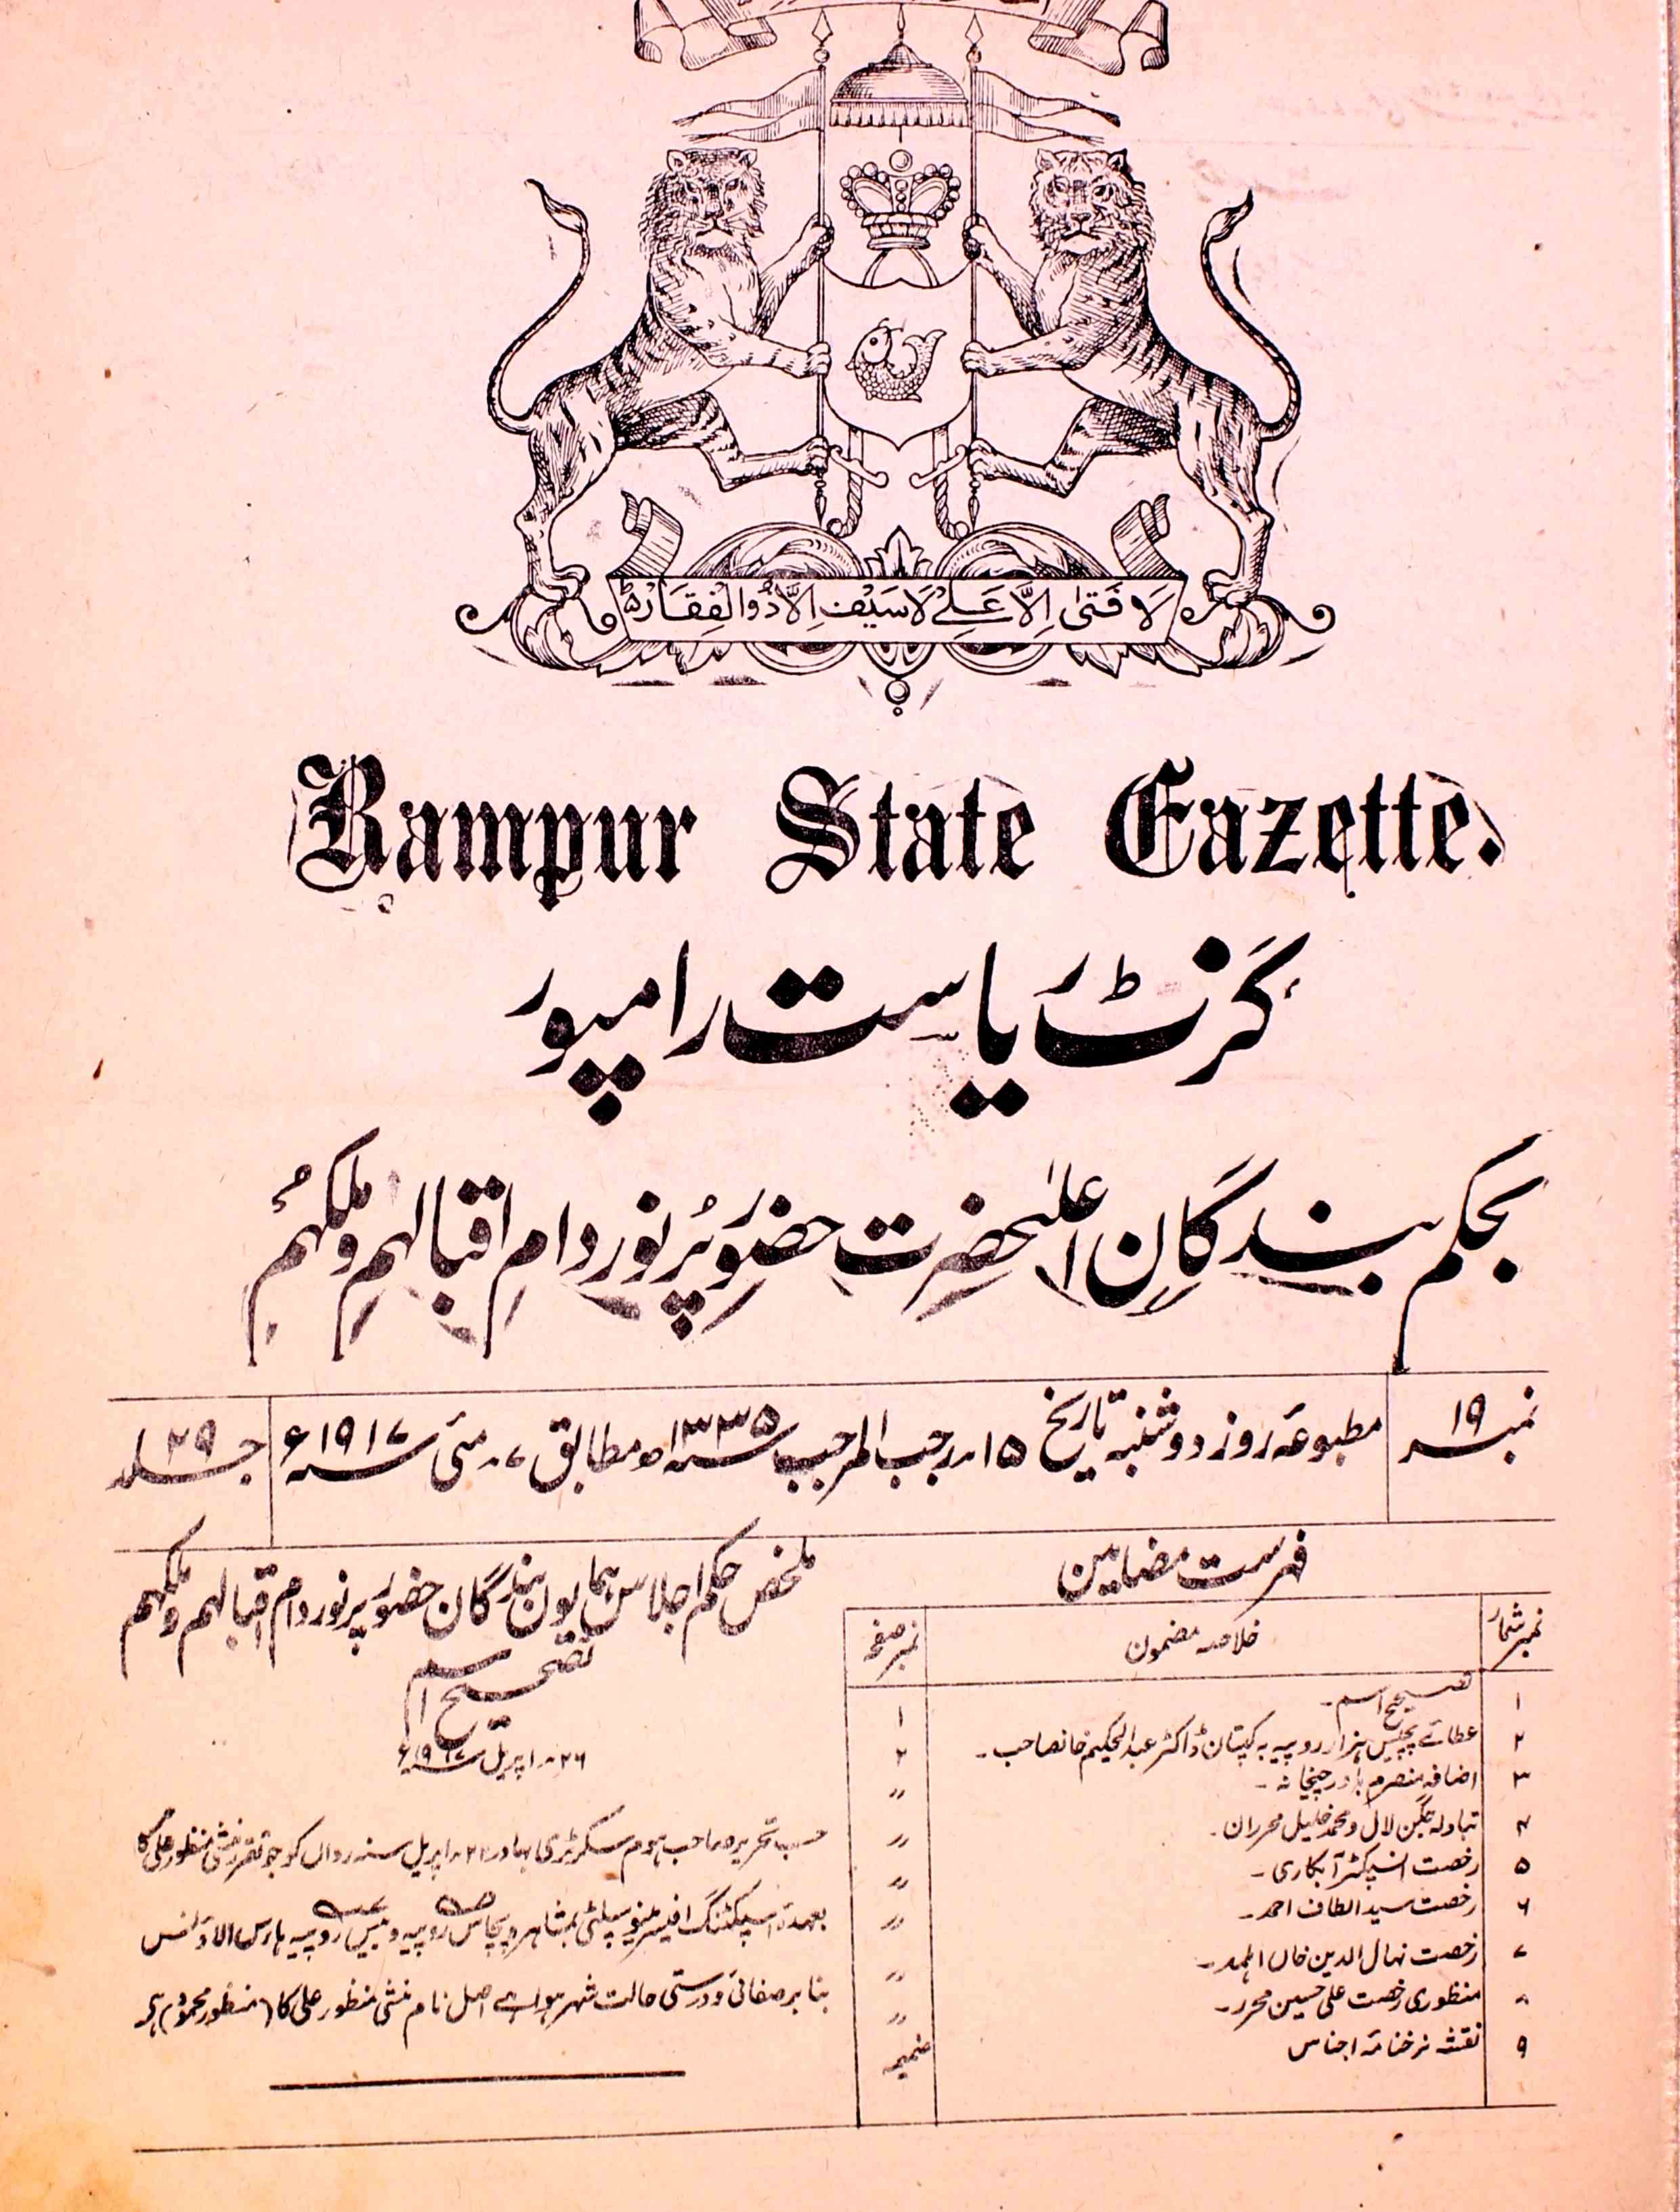 لَا فَتىٰ اِلَّا عَلِے لَا سَيْف اِلَّا ذُوالْفِقَار
Rampur State Gazette.
گزٹ ریاست رامپور
بحکم بندگانِ اعلیٰحضرت حضور پُرنور دام اقبالہم وملکہُم
نمبر ۱۹
مطبوعہ روز دوشنبہ تاریخ ۱۵ رجب المرجب سنہ ۱۳۳۵ھ مطابق ۷ مئی سنہ ۱۹۱۷ء
جلد ۲۹
فہرست مضامین
نمبر شمار خلاصہ مضمون نمبر صفحہ
۱ تصحیح اسم - ۱
۲ عطائے پچیس ہزار روپیہ بہ کپتان ڈاکٹر عبدالحکیم خانصاحب - ۲
۳ اضافہ منصرم باورچیخانہ - 〃
۴ تبادلہ جگن لال و محمد خلیل محرران - 〃
۵ رخصت انسپکٹر آبکاری - 〃
۶ رخصت سید الطاف احمد - 〃
۷ رخصت نہال الدین خاں اہلمد - 〃
۸ منظوری رخصت علی حسین محرر - 〃
۹ نقشہ نرخنامہ اجناس ضمیمہ
ملخص حکم اجلاس ہمایون بندگان حضور پرنور دام اقبالہم وملکہم
تصحیح اسم
۲۶ - اپریل سنہ ۱۹۱۷ء
حسب تحریر صاحب ہوم سکرٹری بہادر ۲۱ - اپریل سنہ رواں کو جو تقرر منشی منظور علی کا
بعہدہ انسپکٹنگ افیسر میونسپلٹی بمشاہرہ پچاس روپیہ و بیس روپیہ ہارس الاؤنس
بنا بر صفائی و درستی حالت شہر ہوا ہے اصل نام منشی منظور علی کا (منظور محمود) ہے